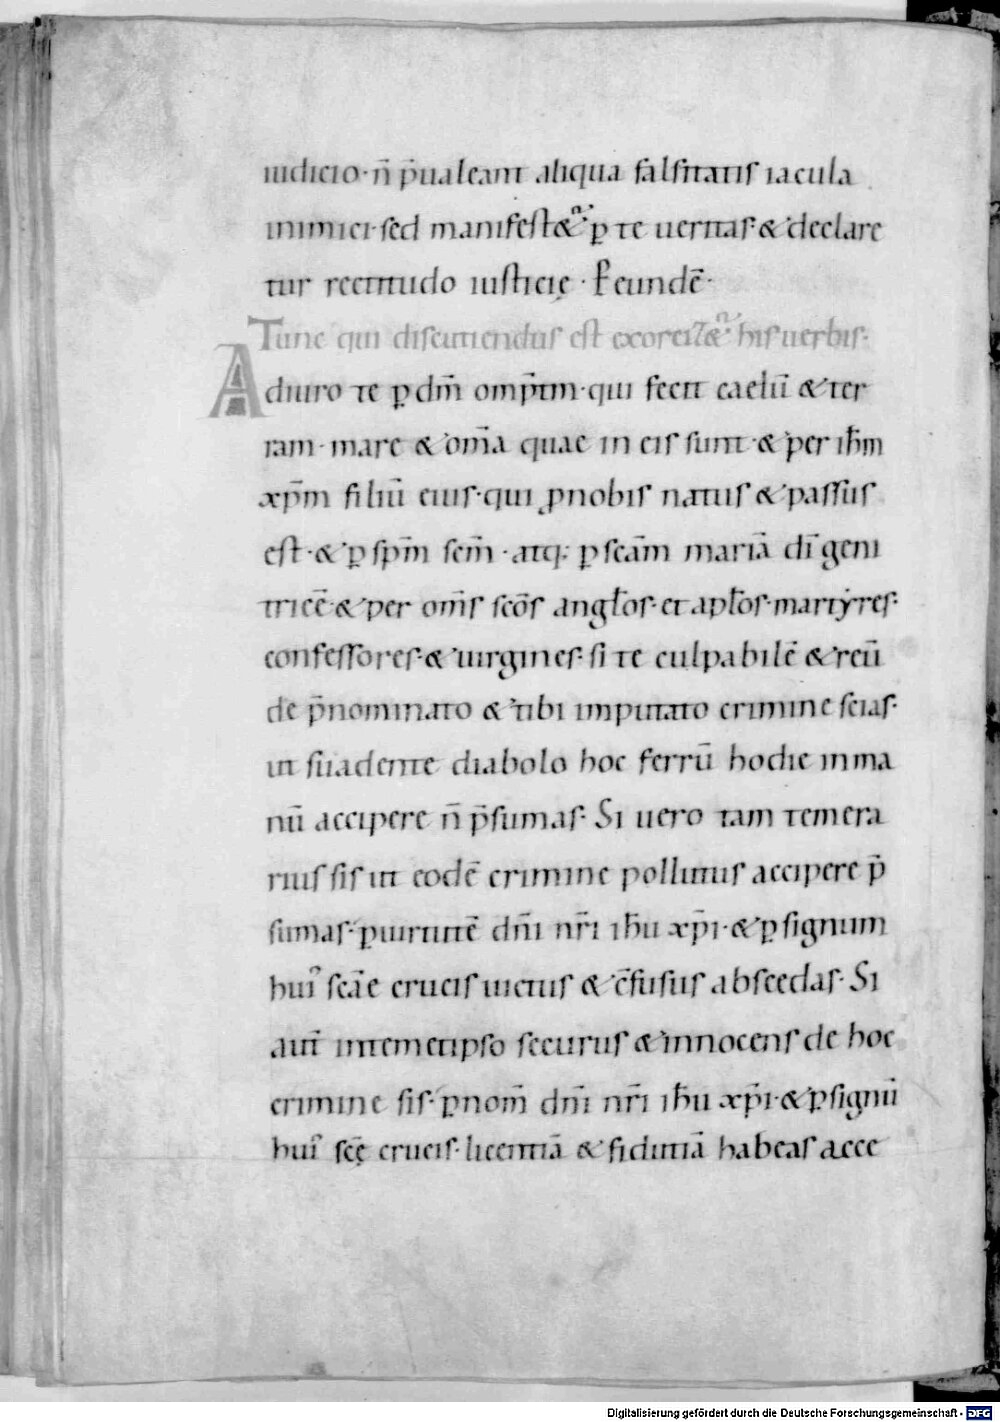 iudicio · n̄ p̄ualeant aliqua falsitatis iacula
inimici · sed manifest&ᷓ · ꝑ te ueritas · & declare
tur rectitudo iusticię · P eundē ·
Tunc qui discutiendus est exorciz&ᷓ his uerbis ·
Adiuro te ꝑ dm̄ omp̄tm · qui fecit caelū & ter
ram · mare & om̄a quae in eis sunt · & per ihm̄
xp̄m filiū eius · qui ꝓ nobis natus & passus
est · & ꝑ sp̄m scm̄ · atq; ꝑ scām mariā dī geni
tricē & per om̄s scōs angłos · et apłos · martẏres ·
confessores · & uirgines · si te culpabilē & reū
de p̄nominato & tibi imputato crimine scias ·
ut suadente diabolo hoc ferrū hodie in ma
nū accipere n̄ p̄sumas · Si uero tam temera
rius sis ut eodē crimine pollutus accipere p̄
sumas · ꝑ uirtutē dn̄i nr̄i ihu̅ xp̄i · & ꝑ signum
hui᾿ scāe crucis uictus & c̄fusus abscedas · Si
aut̄ in temetipso securus & innocens de hoc
crimine sis · ꝑ nom̄ dn̄i nr̄i ihu̅ xp̄i · & ꝑ signū
hui᾿ scę̄ crucis · licentiā & fidutiā habeas acce
Digitalisierung gefördert durch die Deutsche Forschungsgemeinschaft - DFG